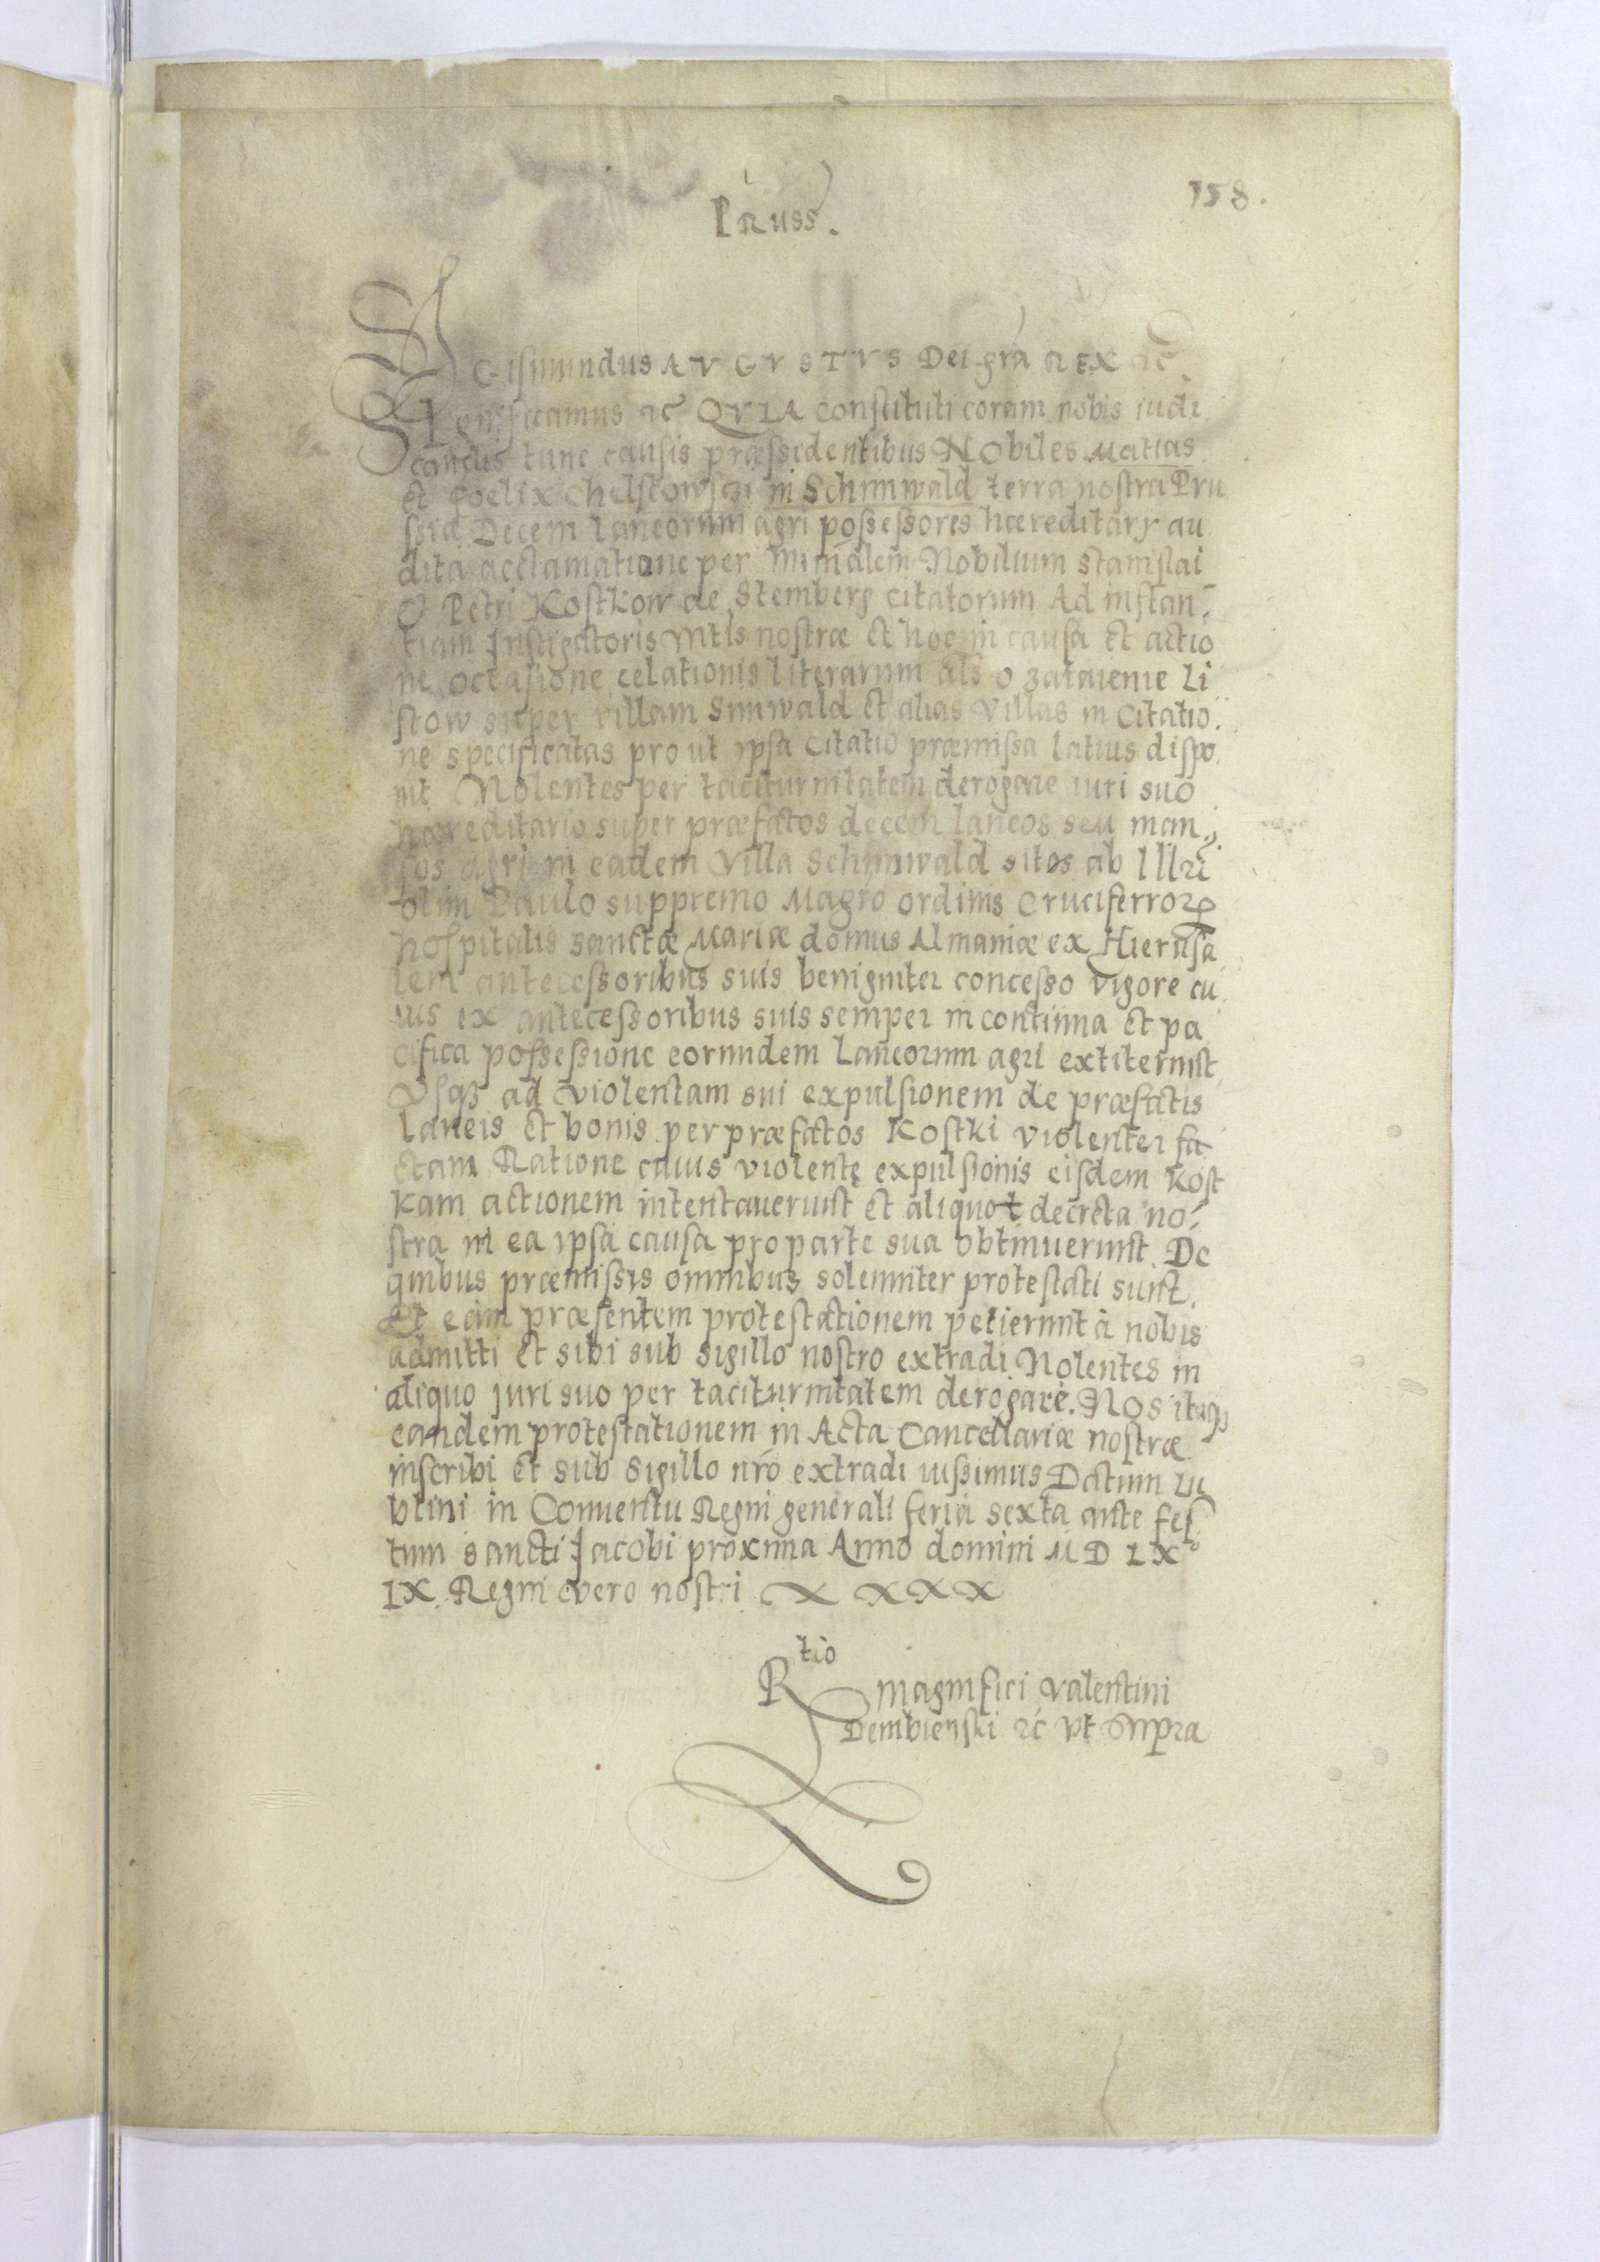 Pruss.
158.
Sigismundus AVGVSTVS Dei gra REX etc.
Significamus etc QVIA constituti coram nobis iudi
candis tunc causis præssidentibus Nobiles Matias
et Foelix Chelstowsczi in Schinwald terra nostra Pru
ssiæ Decem laneorum agri possessores hæreditarÿ au
dita acclamatione per Mi͞nalem Nobilium Stanislai
& Petri Kostkow de Stemberg citatorum Ad instan
tiam Instigatoris Mtis nostræ et hoc in causa et actio
ne occasione celationis literarum als o zataienie Li
stow super villam Sinwald et alias villas in Citatio
ne specificatas pro ut ipsa citatio præmissa latius dispo
nit Nolentes per taciturnitatem derogare iuri suo
hæreditario super præfatos decem laneos seu man
sos agri in eadem Villa Schinwald sitos ab Illri
olim Paulo suppremo Magro ordinis Cruciferroꝝ
hospitalis sanctæ Mariæ domus Almaniæ ex Hierusa
lem antecessoribus suis benigniter concesso vigore cu
ius ex antecessoribus suis semper in continua et pa
cifica possessione eorundem laneorum agri extiterunt
Vsqꝫ ad violentam sui expulsionem de præfatis
laneis et bonis per præfatos Kostki violenter fa
ctam Ratione cuius violentę expulsionis eisdem Kost
kam actionem intentauerunt et aliquot decreta no
stra in ea ipsa causa pro parte sua obtinuerunt. De
quibus præmissis omnibus solenniter protestati sunt.
Et eam præsentem protestationem petierunt à nobis
admitti et sibi sub sigillo nostro extradi Nolentes in
aliquo juri suo per taciturnitatem derogare. Nos itaqꝫ
eandem protestationem in Acta Cancellariæ nostræ
inscribi et sub sigillo nro extradi iussimus Datum Lu
blini in Conuentu Regni generali feria sexta ante fes
tum sancti Jacobi proxima Anno domini M D LX
IX. Regni vero nostri X XXX
Rtio
Magnifici Valentini
Dembienski etc vt Supra